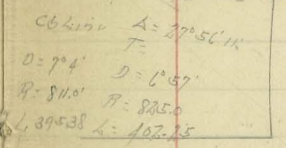 C6 Line Δ = 27°56'
T =
D = 7°4' D = 6°57'
R = 811.0' R = 825.0
L 395.38 L = 402.25